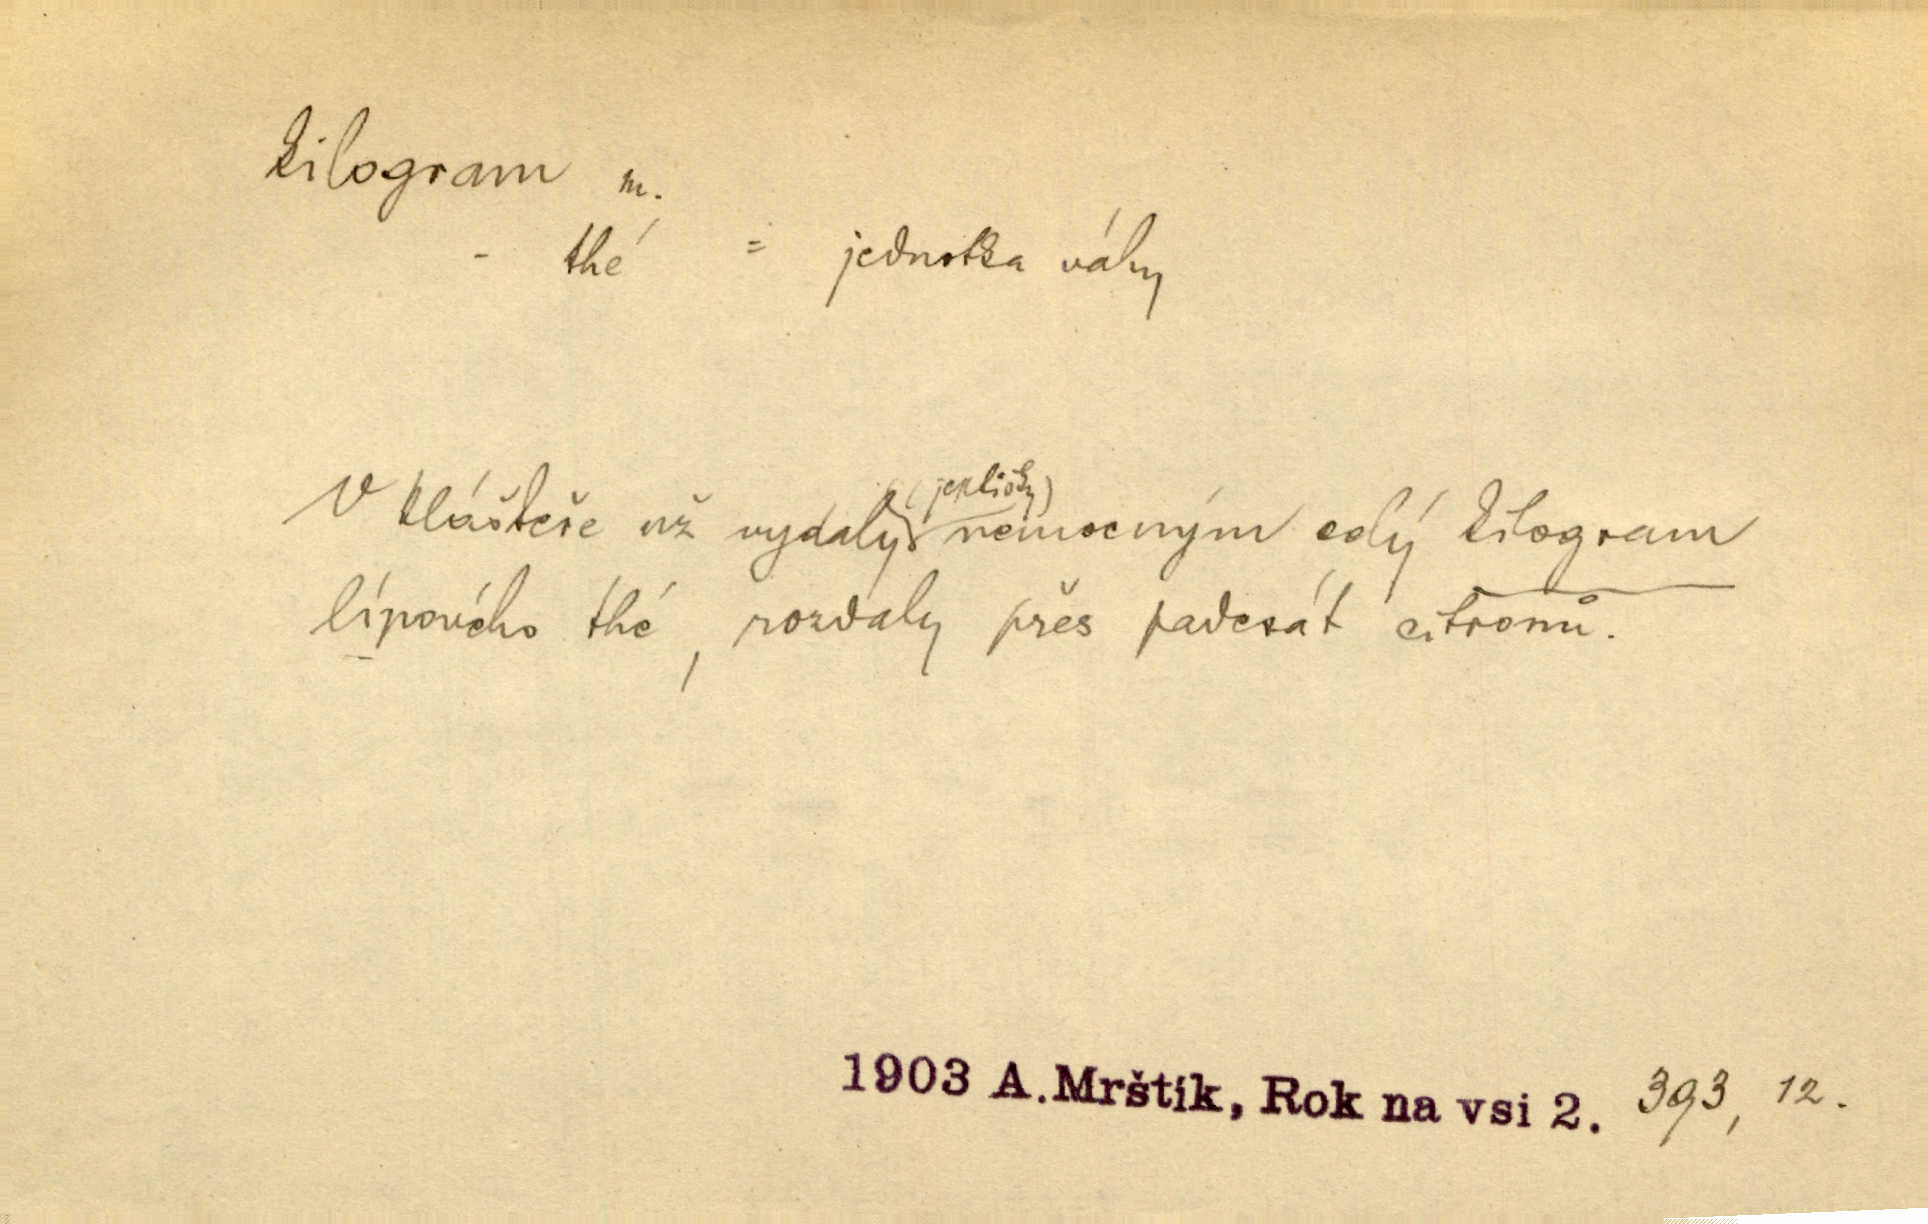 kilogram m.
- thé = jednotka váhy
V klášteře už vydaly (jeptišky) nemocným celý kilogram
lípového thé, rozdaly přes padesát citronů.
1903 A. Mrštík, Rok na vsi 2. 393, 12.